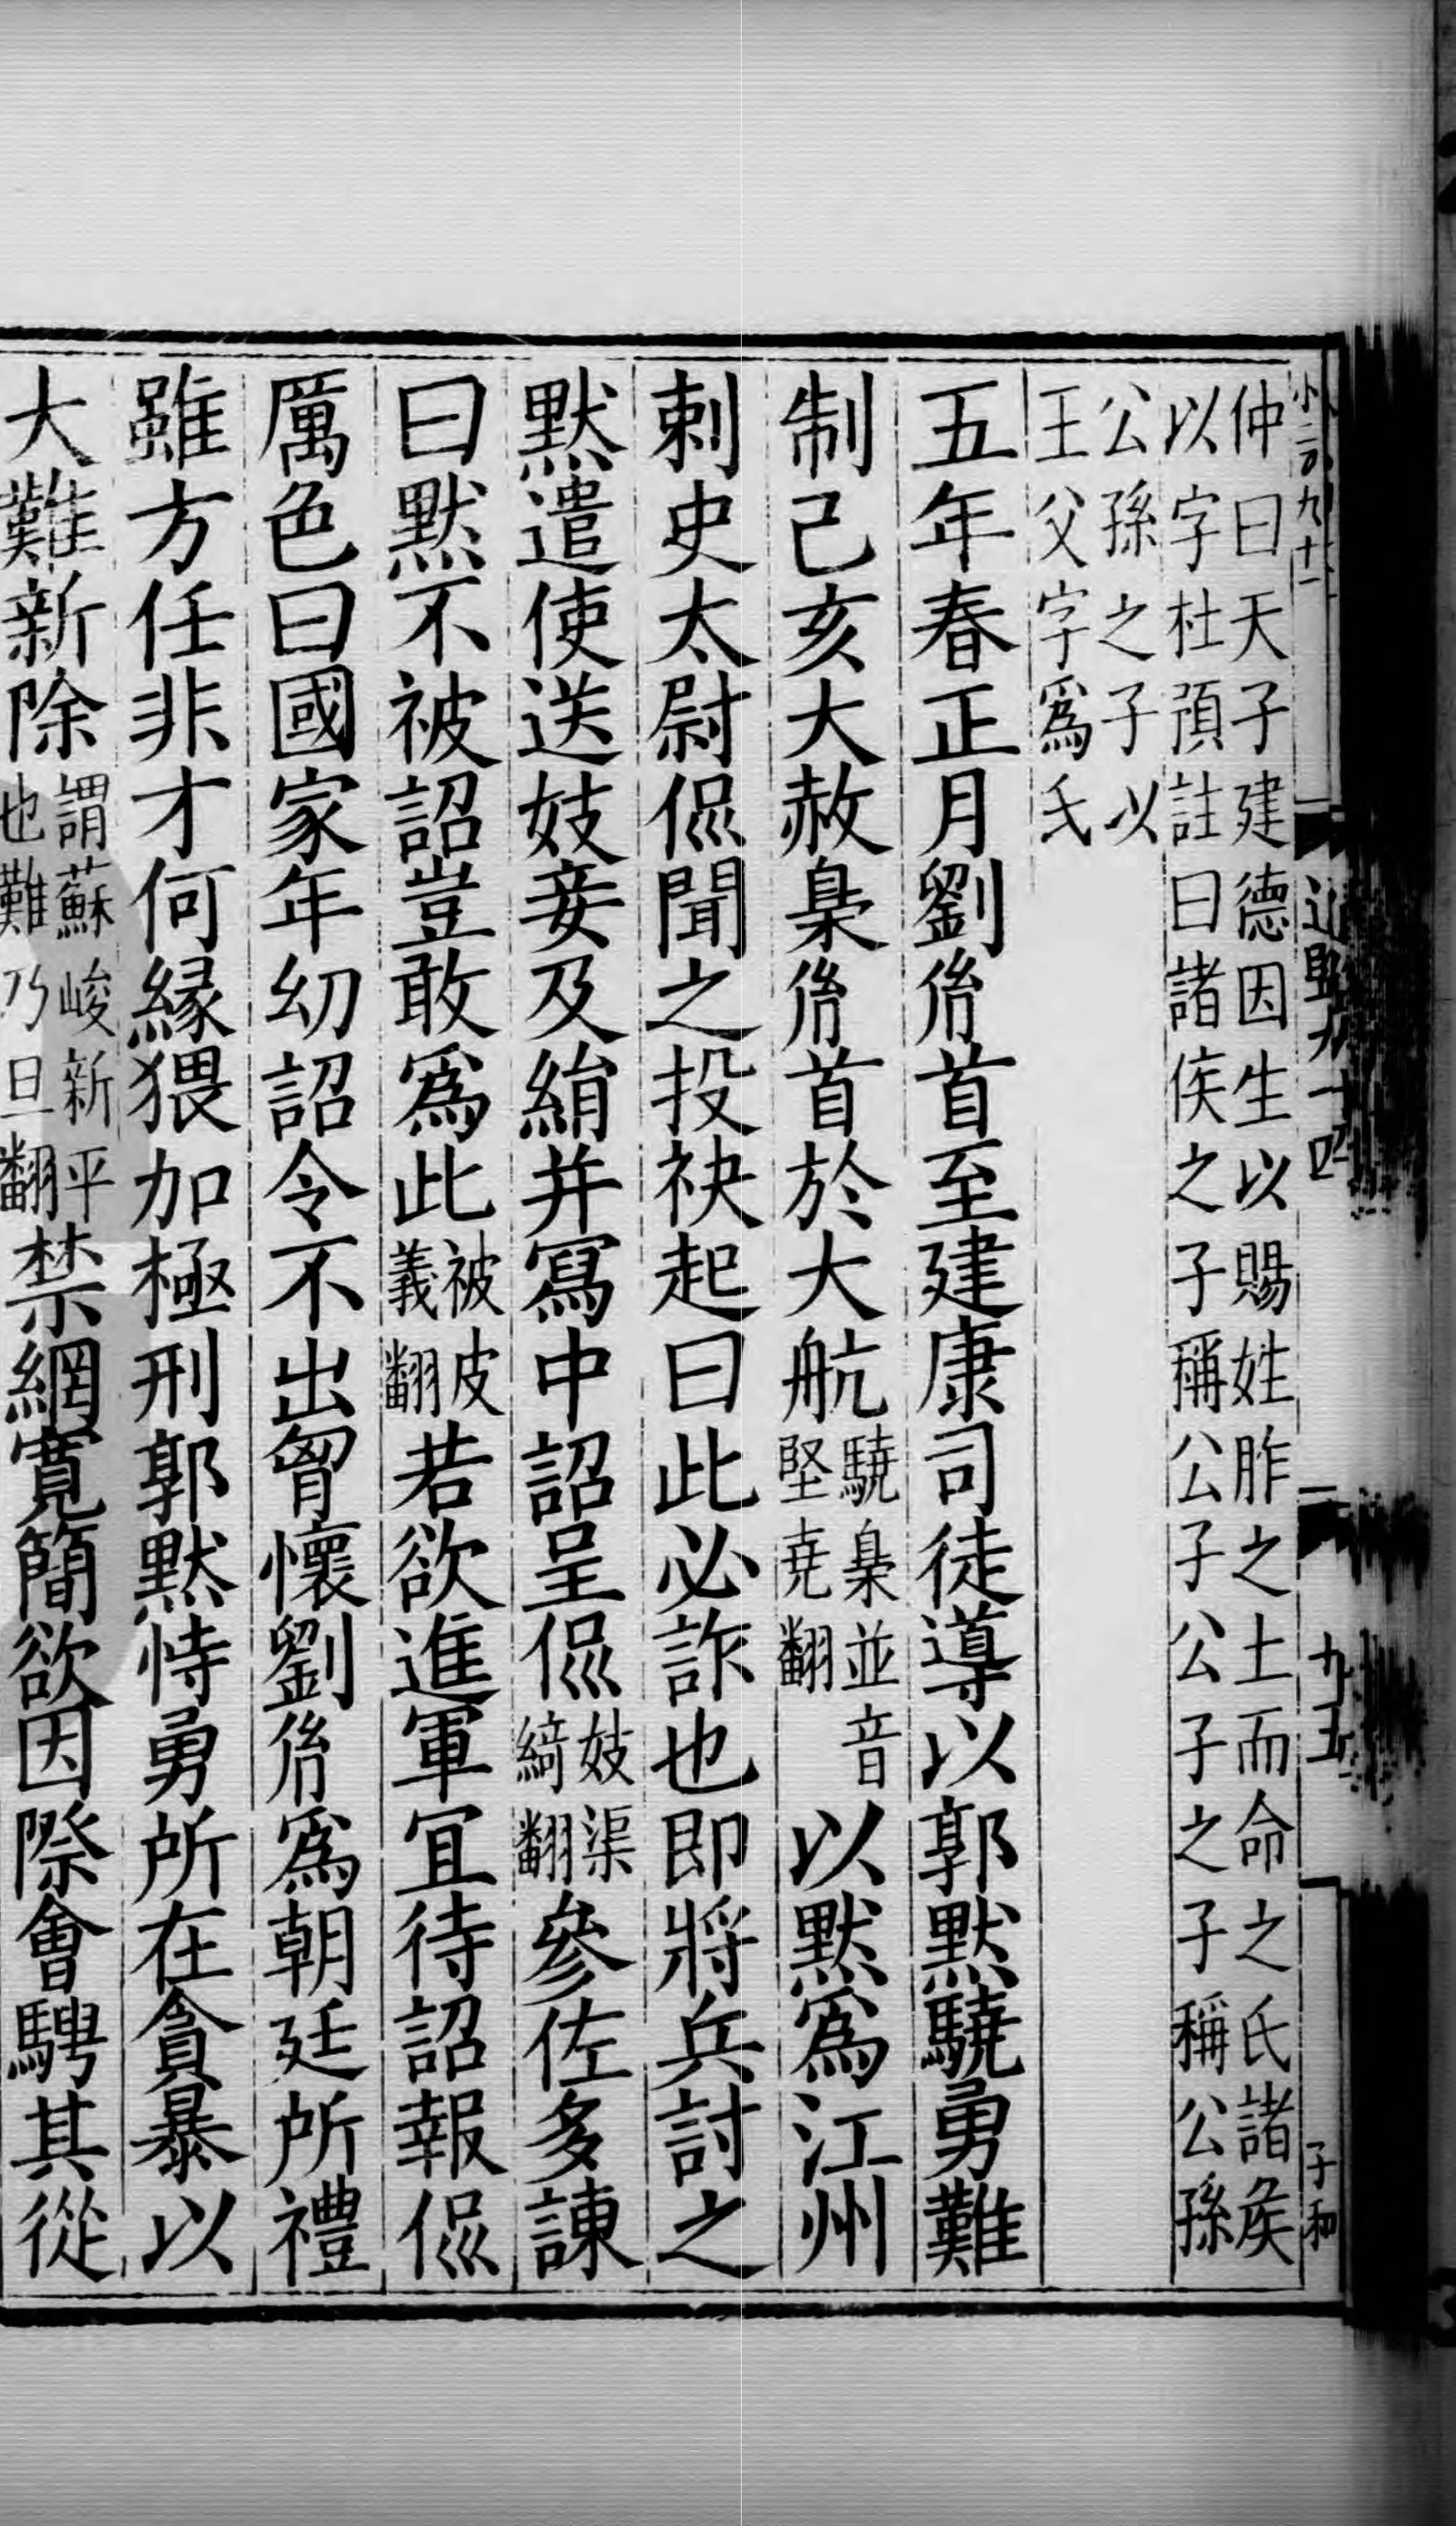 仲曰天子建德因生以賜姓胙之土而命之氏諸侯
以字杜預註曰諸侯之子稱公子公子之子稱公孫
公孫之子以
王父字爲氏
五年春正月劉㣧首至建康司徒導以郭黙驍勇難
制己亥大赦梟㣧首於大航驍梟並音堅堯翻以黙爲江州
刺史太尉侃聞之投袂起曰此必詐也即將兵討之
黙遣使送妓妾及絹并寫中詔呈侃妓渠綺翻參佐多諫
曰黙不被詔豈敢爲此被皮義翻若欲進軍宜待詔報侃
厲色曰國家年幼詔令不出胷懷劉㣧爲朝廷所禮
雖方任非才何緣猥加極刑郭黙恃勇所在貪暴以
大難新除謂蘇峻新平也難乃旦翻禁網寬簡欲因際會騁其從